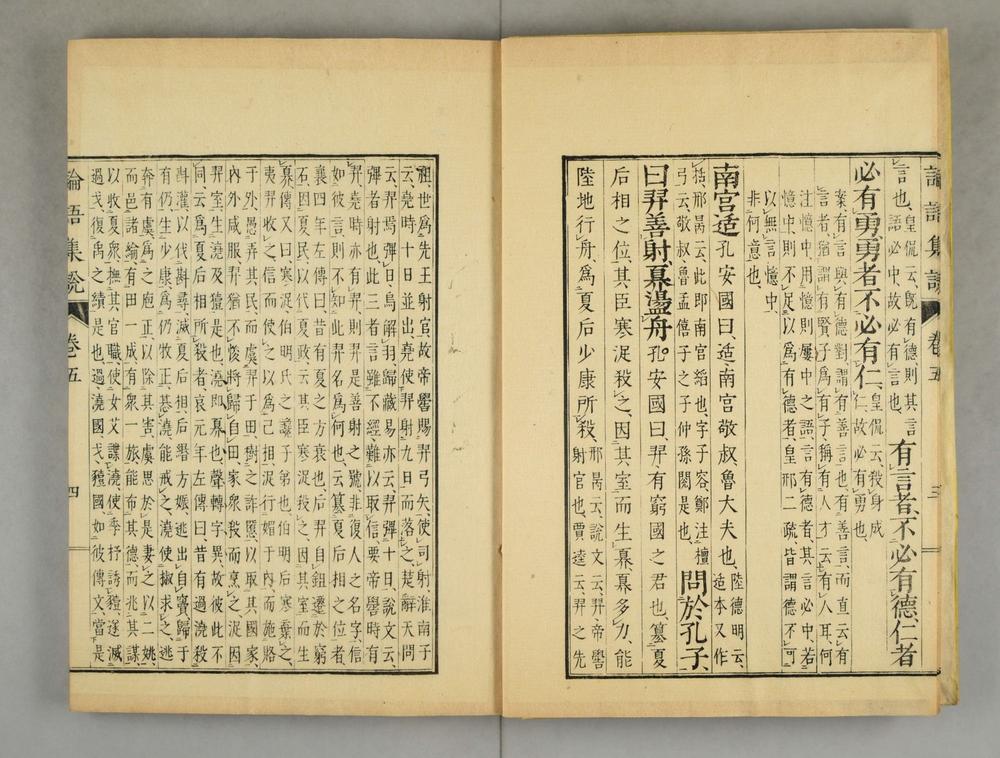 論語集說 卷五 三
言也、皇侃云、既有德則其言語必中、故必有言也、有言者、不必有德、仁者
必有勇、勇者不必有仁、皇侃云、殺身成仁、故必有勇也、
案有言與有德對、謂有善言也、有善言、而直云有
言者、猶謂有賢子爲有子、稱有人才云有人耳、何
注憶中、用憶則屢中之語、言有德者、其言必中、若
憶中、則不足以爲有德者、皇邢二疏、皆謂德不可
以無言憶中、
非何意也、
南宮适孔安國曰、适南宮敬叔、魯大夫也、陸德明云、适本又作
括、邢昺云、此即南宮縚也、字子容、鄭注檀
弓云、敬叔魯孟僖子之子仲孫閱是也、問於孔子、
曰、羿善射、奡盪舟。孔安國曰、羿有窮國之君也、篡夏
后相之位、其臣寒浞殺之、因其室而生奡、奡多力、能
陸地行舟、爲夏后少康所殺、邢昺云、說文云、羿帝嚳射官也、賈逵云、羿之先
祖、世爲先王射官、故帝嚳賜羿弓矢、使司射、淮南子
云、堯時十日並出、堯使羿射九日而落之、楚辭天問
云、羿焉彈日、烏解羽、歸藏易亦云、羿彈十日、說文云、
彈者射也、此三者言雖不經、難以取信、要帝嚳時有
羿、堯時亦有羿、則羿是善射之號、非復人之名字、信
如彼言、則不知此羿名爲何也、云篡夏后相之位者、
襄四年左傳曰、昔有夏之方衰也、后羿自鉏遷於窮
石、因夏民以代夏政、云其臣寒浞殺之、因其室而生
奡傳又曰、寒浞、伯明氏之讒子弟也、伯明后寒棄之、
夷羿收之、信而使之、以爲己相、浞行媚于內而施賂
于外、愚弄其民、而虞羿于田、樹之詐慝、以取其國家、
內外咸服、羿猶不悛、將歸自田、家衆殺而烹之、浞因
羿室、生澆及豷是也、澆即奡也、聲轉字異、故彼此不
同、云爲夏后相所殺者、哀元年左傳曰、昔有過澆殺
斟灌以伐斟尋、滅夏后相、后緡方娠、逃出自竇、歸于
有仍、生少康焉、爲仍牧正、惎澆能戒之、澆使椒求之、逃
奔有虞、爲之庖正、以除其害、虞思於是妻之以二姚、
而邑諸綸、有田一成、有衆一旅、能布其德、而兆其謀、
以收夏衆、撫其官職、使女艾諜澆、使季抒誘豷、遂滅
過戈、復禹之績是也、過澆國、戈豷國、如彼傳文、當是
論語集說 卷五 四